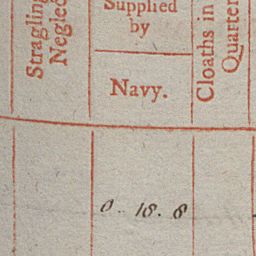 Straglin
Neglec
Supplied
by
Navy.
Cloaths in
Quarter
0.. 18. 8